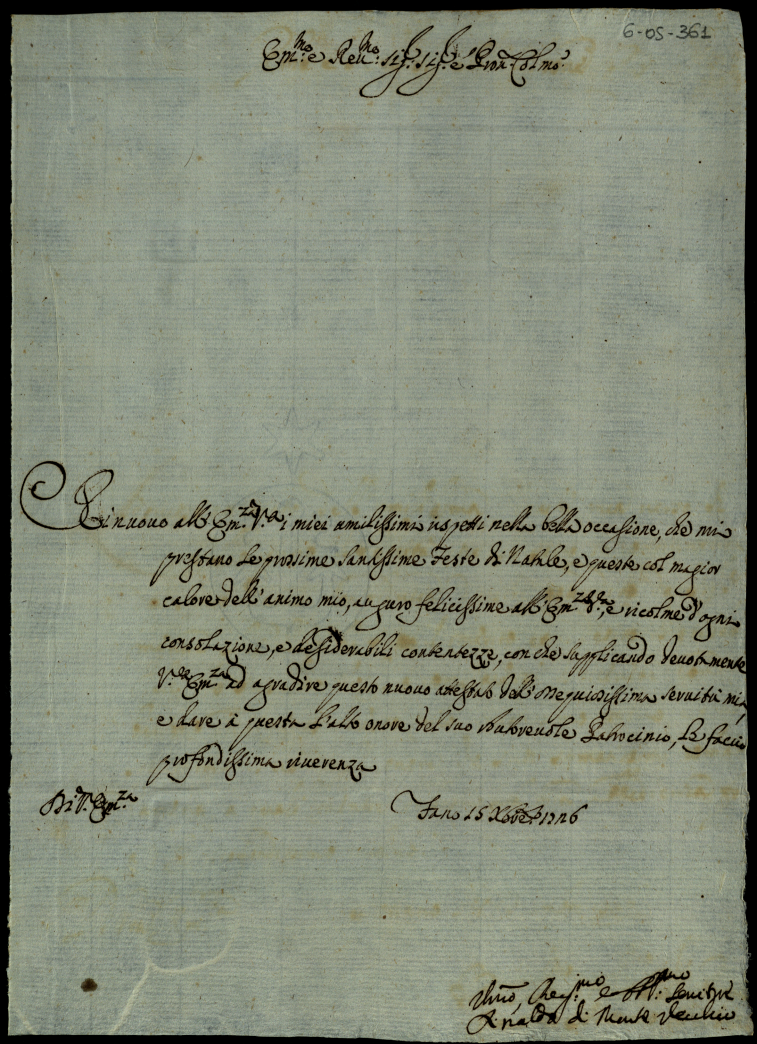 6-05-361
Em.mo e Reu.mo Sig.r Sig.r e Pron. Colmo.
Rinuouo all' Em.za V.ra i miei umilissimi rispetti nella bella occasione, che mi
prestano le prossime Santissime Feste di Natale, e queste col magior
calore dell' animo mio, auguro felicissime all' Em.za V.ra, e ricolme d'ogni
consolazione, e desiderabili contentezze, con che supplicando deuotamente
V.ra Em.za ad agradire questo nuouo attestato dell' ossequiosissima seruitù mia
e dare à questa l'alto onore del suo autoreuole Patrocinio, le faccio
profondissima riuerenza
Di V.ra Em.za
Fano 15 Xbre 1726
Vmo, Deu.mo e Obb.mo Seruitore
Rinaldo di Monte Vecchio